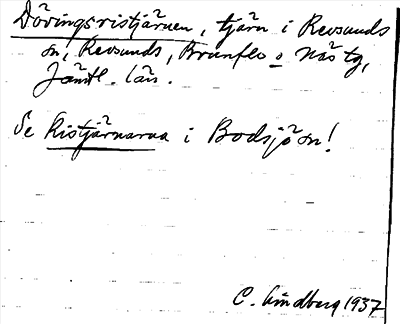 Dövingsristjärnen, tjärn i Revsunds
sn, Revsunds, Brunflo o Näs tg,
Jämtl. län.
Se Ristjärnarna i Bodsjö sn!
C. Lindberg 1937